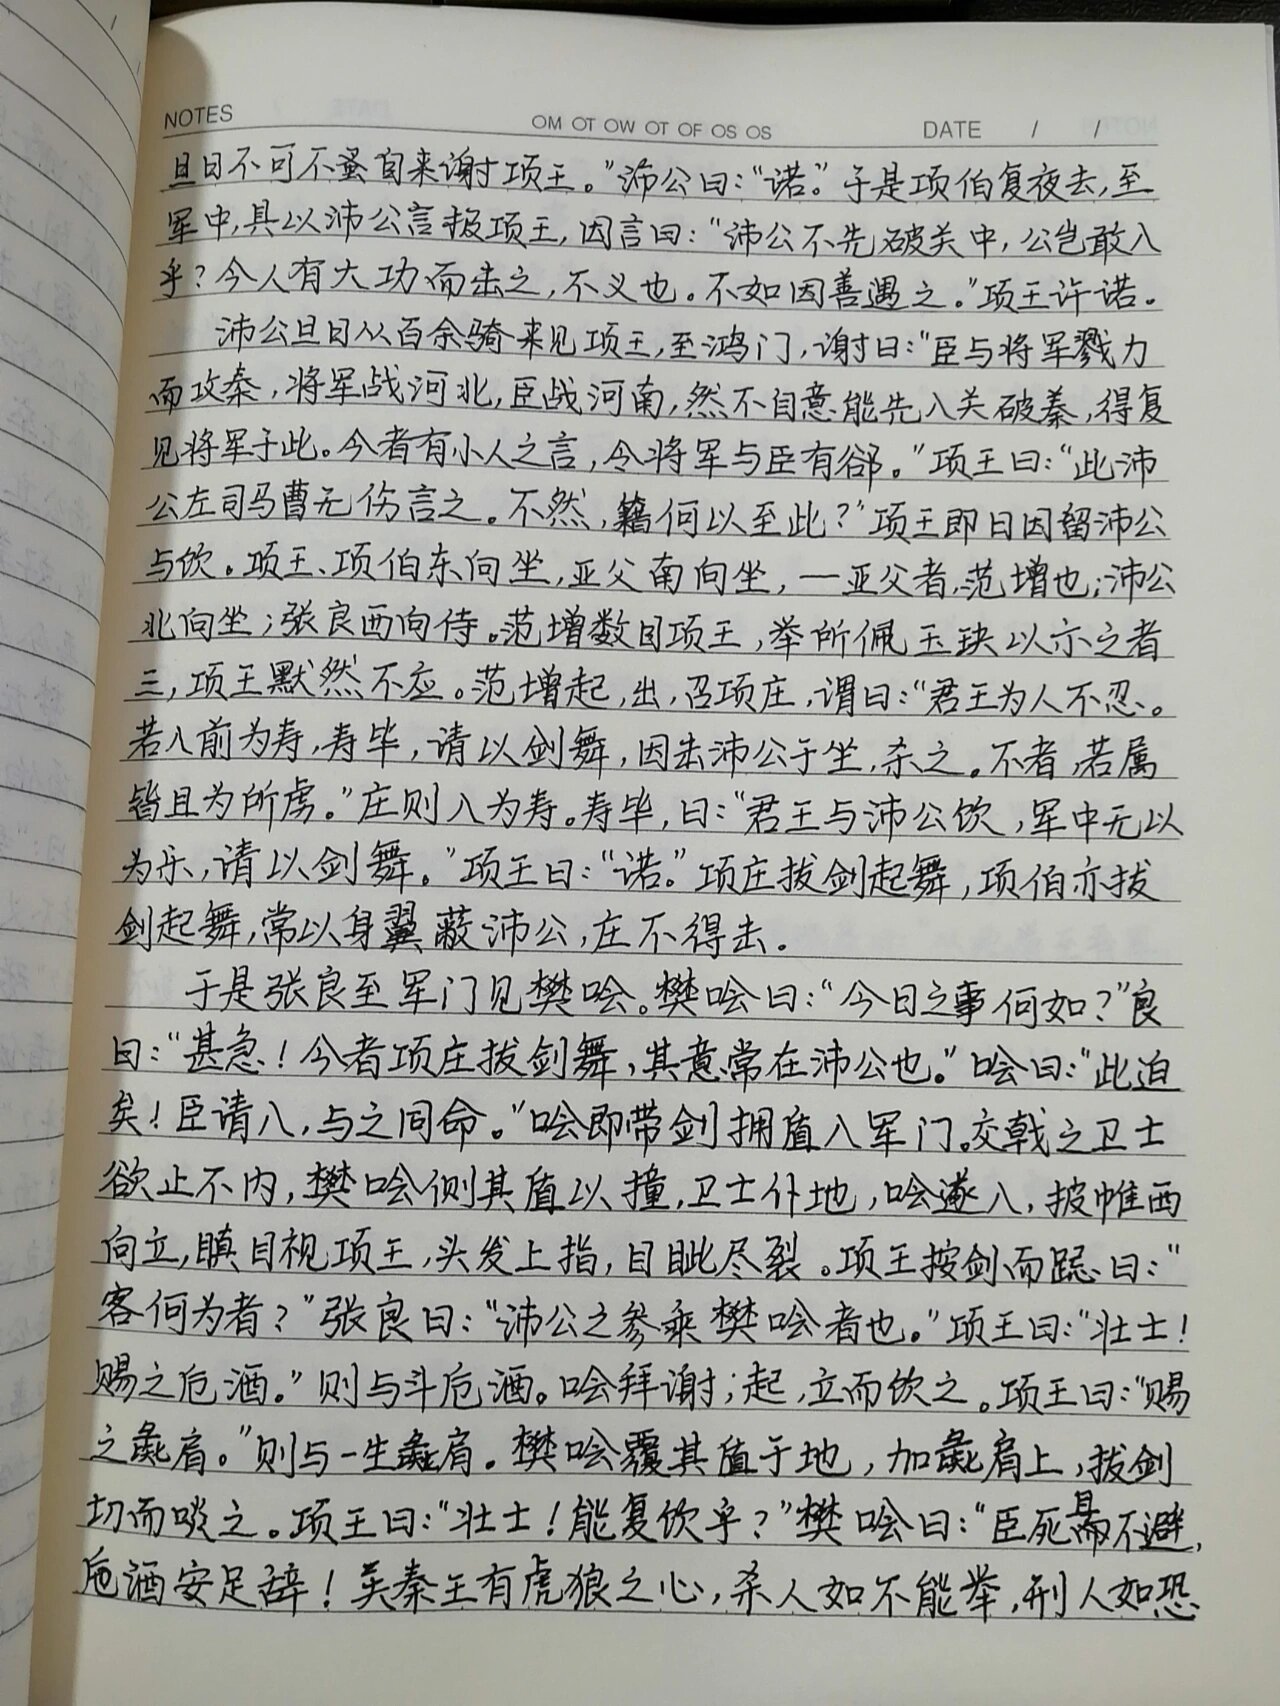 NOTES OM OT OW OT OF OS OS DATE / /
旦日不可不蚤自来谢项王。”沛公曰：“诺。”于是项伯复夜去，至
军中，具以沛公言报项王，因言曰：“沛公不先破关中，公岂敢入
乎？今人有大功而击之，不义也。不如因善遇之。”项王许诺。
沛公旦日从百余骑来见项王，至鸿门，谢曰：“臣与将军戮力
而攻秦，将军战河北，臣战河南，然不自意能先入关破秦，得复
见将军于此。今者有小人之言，令将军与臣有郤。”项王曰：“此沛
公左司马曹无伤言之。不然，籍何以至此？”项王即日因留沛公
与饮。项王、项伯东向坐，亚父南向坐，—亚父者，范增也；沛公
北向坐；张良西向侍。范增数目项王，举所佩玉玦以示之者
三，项王默然不应。范增起，出，召项庄，谓曰：“君王为人不忍。
若入前为寿，寿毕，请以剑舞，因击沛公于坐，杀之。不者，若属
皆且为所虏。”庄则入为寿。寿毕，曰：“君王与沛公饮，军中无以
为乐，请以剑舞。”项王曰：“诺。”项庄拔剑起舞，项伯亦拔
剑起舞，常以身翼蔽沛公，庄不得击。
于是张良至军门见樊哙。樊哙曰：“今日之事何如？”良
曰：“甚急！今者项庄拔剑舞，其意常在沛公也。”哙曰：“此迫
矣！臣请入，与之同命。”哙即带剑拥盾入军门。交戟之卫士
欲止不内，樊哙侧其盾以撞，卫士仆地，哙遂入，披帷西
向立，瞋目视项王，头发上指，目眦尽裂。项王按剑而跽曰：“
客何为者？”张良曰：“沛公之参乘樊哙者也。”项王曰：“壮士！
赐之卮酒。”则与斗卮酒。哙拜谢；起，立而饮之。项王曰：“赐
之彘肩。”则与一生彘肩。樊哙覆其盾于地，加彘肩上，拔剑
切而啖之。项王曰：“壮士！能复饮乎？”樊哙曰：“臣死且不避，
卮酒安足辞！夫秦王有虎狼之心，杀人如不能举，刑人如恐